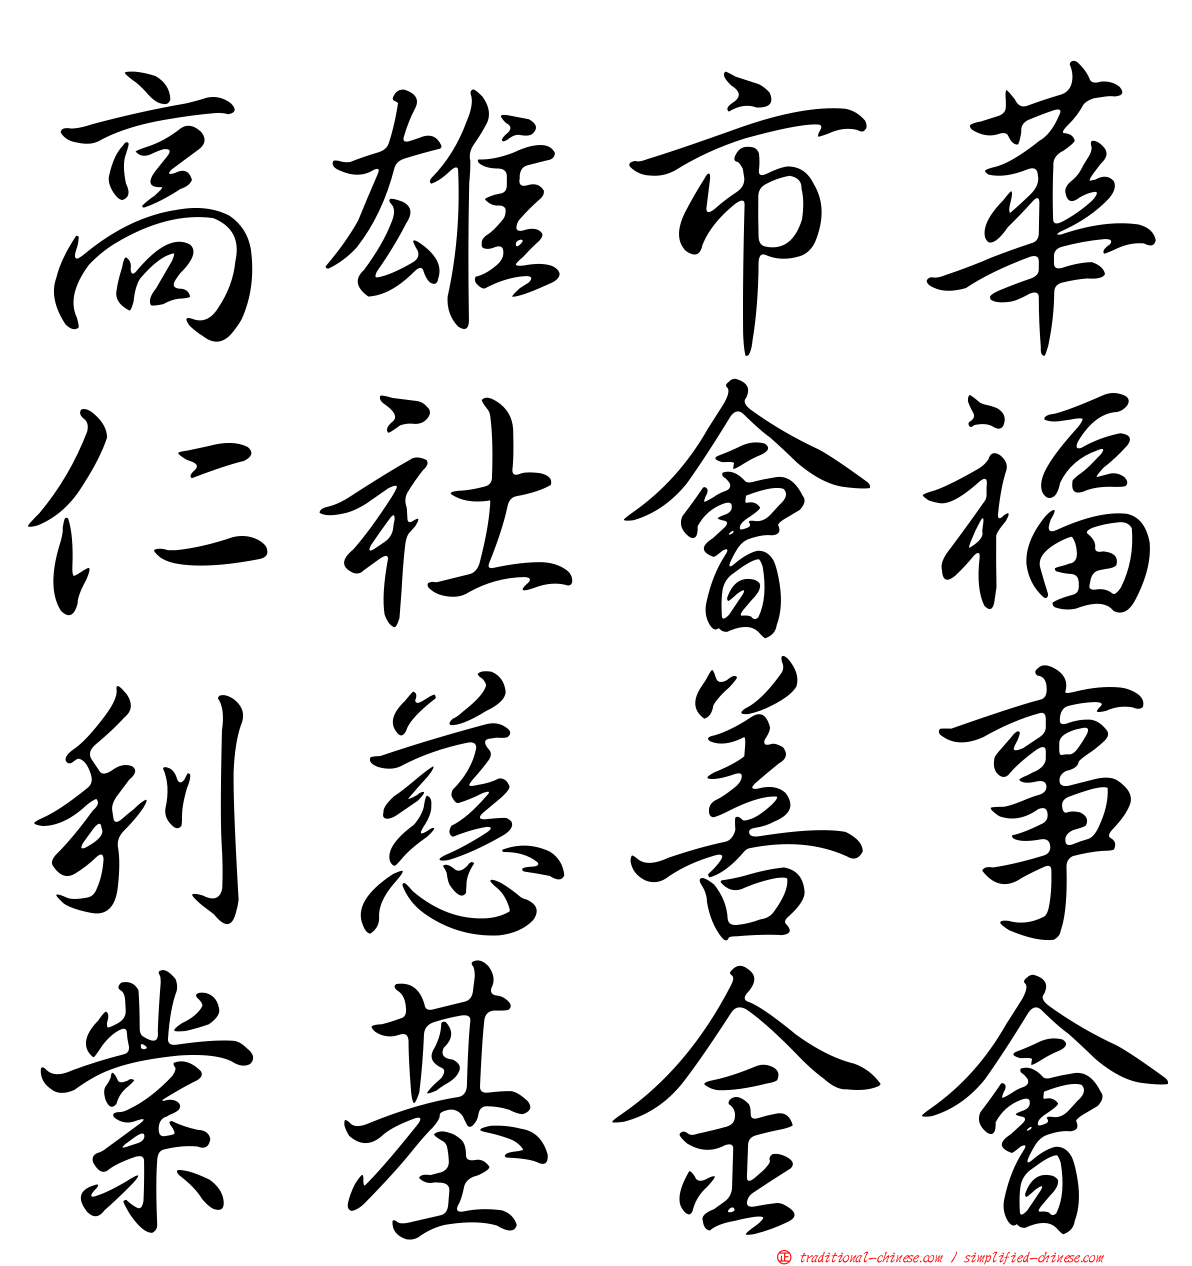 高雄市華
仁社會福
利慈善事
業基金會
正 traditional-chinese.com / simplified-chinese.com